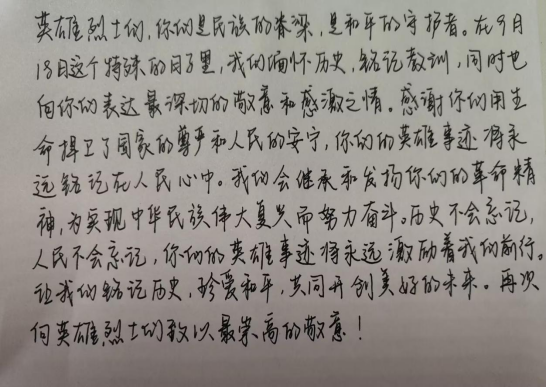 英雄烈士们,你们是民族的脊梁,是和平的守护者。在9月
18日这个特殊的日子里,我们缅怀历史,铭记教训,同时也
向你们表达最深切的敬意和感激之情。感谢你们用生
命捍卫了国家的尊严和人民的安宁,你们的英雄事迹将永
远铭记在人民心中。我们会继承和发扬你们的革命精
神,为实现中华民族伟大复兴而努力奋斗。历史不会忘记,
人民不会忘记,你们的英雄事迹将永远激励着我们前行。
让我们铭记历史,珍爱和平,共同开创美好的未来。再次
向英雄烈士们致以最崇高的敬意!